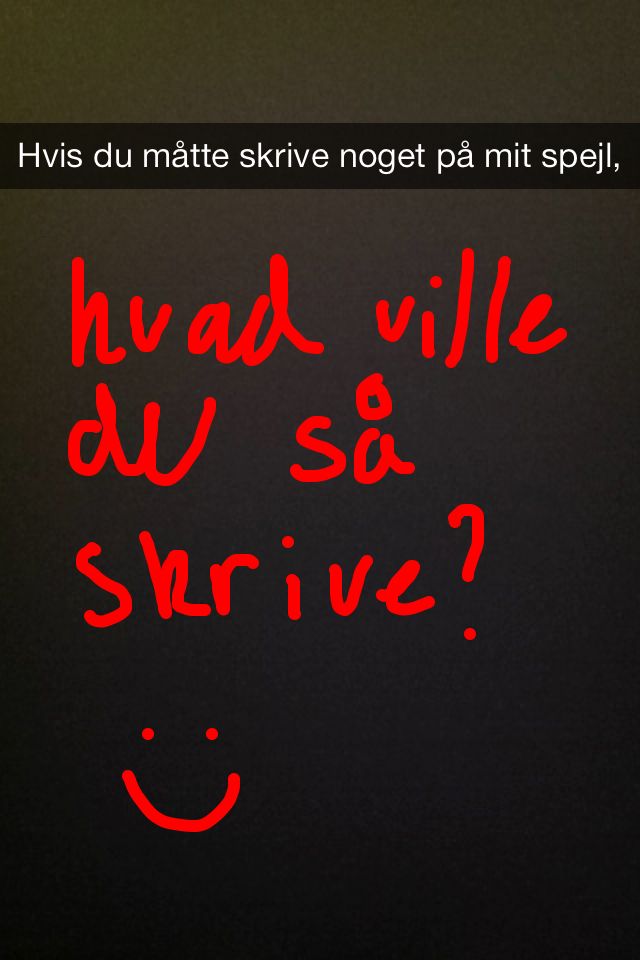 Hvis du måtte skrive noget på mit spejl,
hvad ville
du så
skrive?